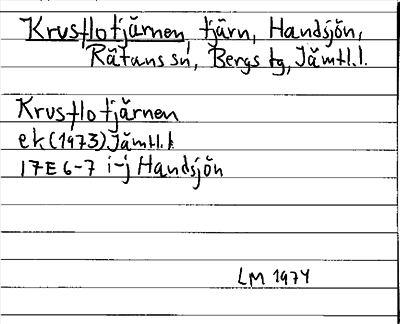 Krusflotjärnen, tjärn, Handsjön,
Rätans sn, Bergs tg, Jämtl.l.
Krusflotjärnen
ek (1973) Jämtl.l.
17E 6-7 i-j Handsjön
LM 1974